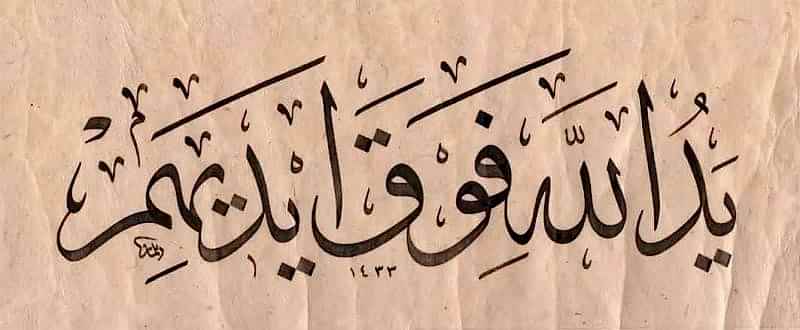 يَدُ اللّٰهِ فَوْقَ اَيْدِيهِمْ
١٤٣٣